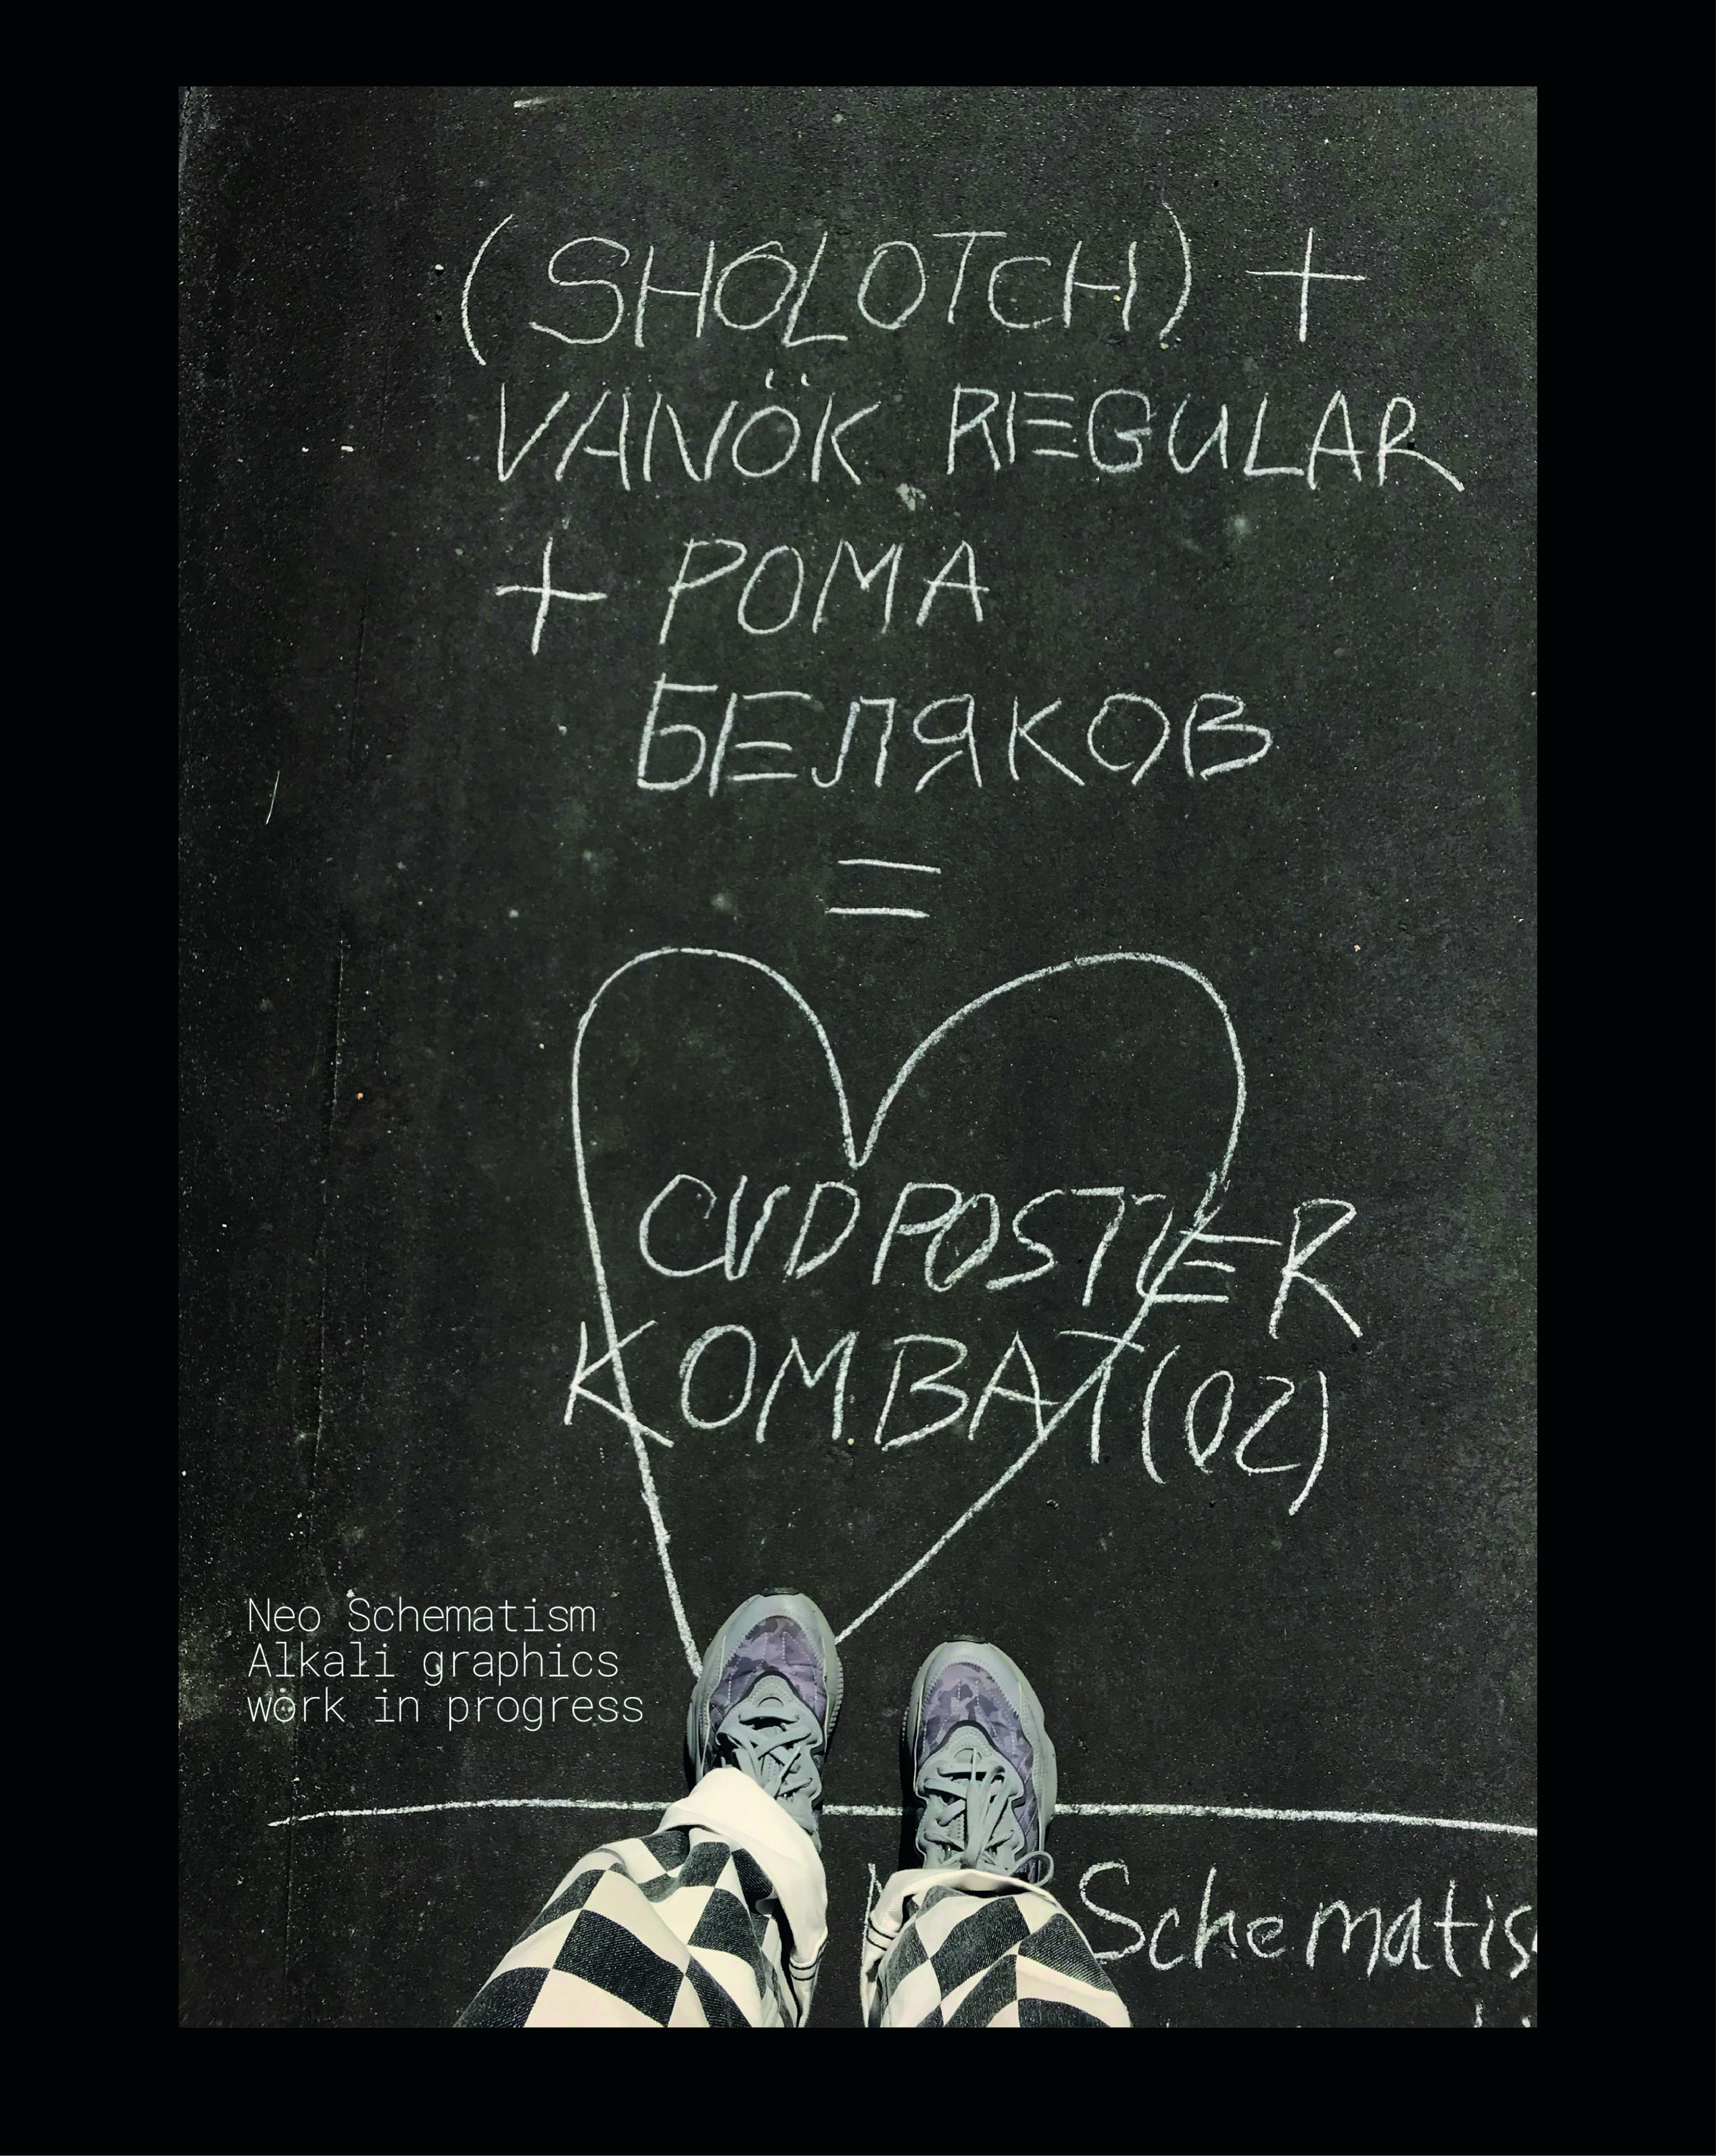 (SHOLOTCH) +
VANÖK REGULAR
+ РОМА
БЕЛЯКОВ
=
CVD POSTER
KOMBAT (02)
Neo Schematism
Alkali graphics
work in progress
Schematis